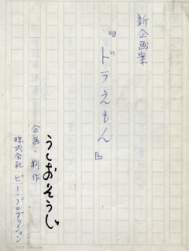 新企画案
『ドラえもん』
企画・制作
うしおそうじ
株式会社 ピー・プロダクション